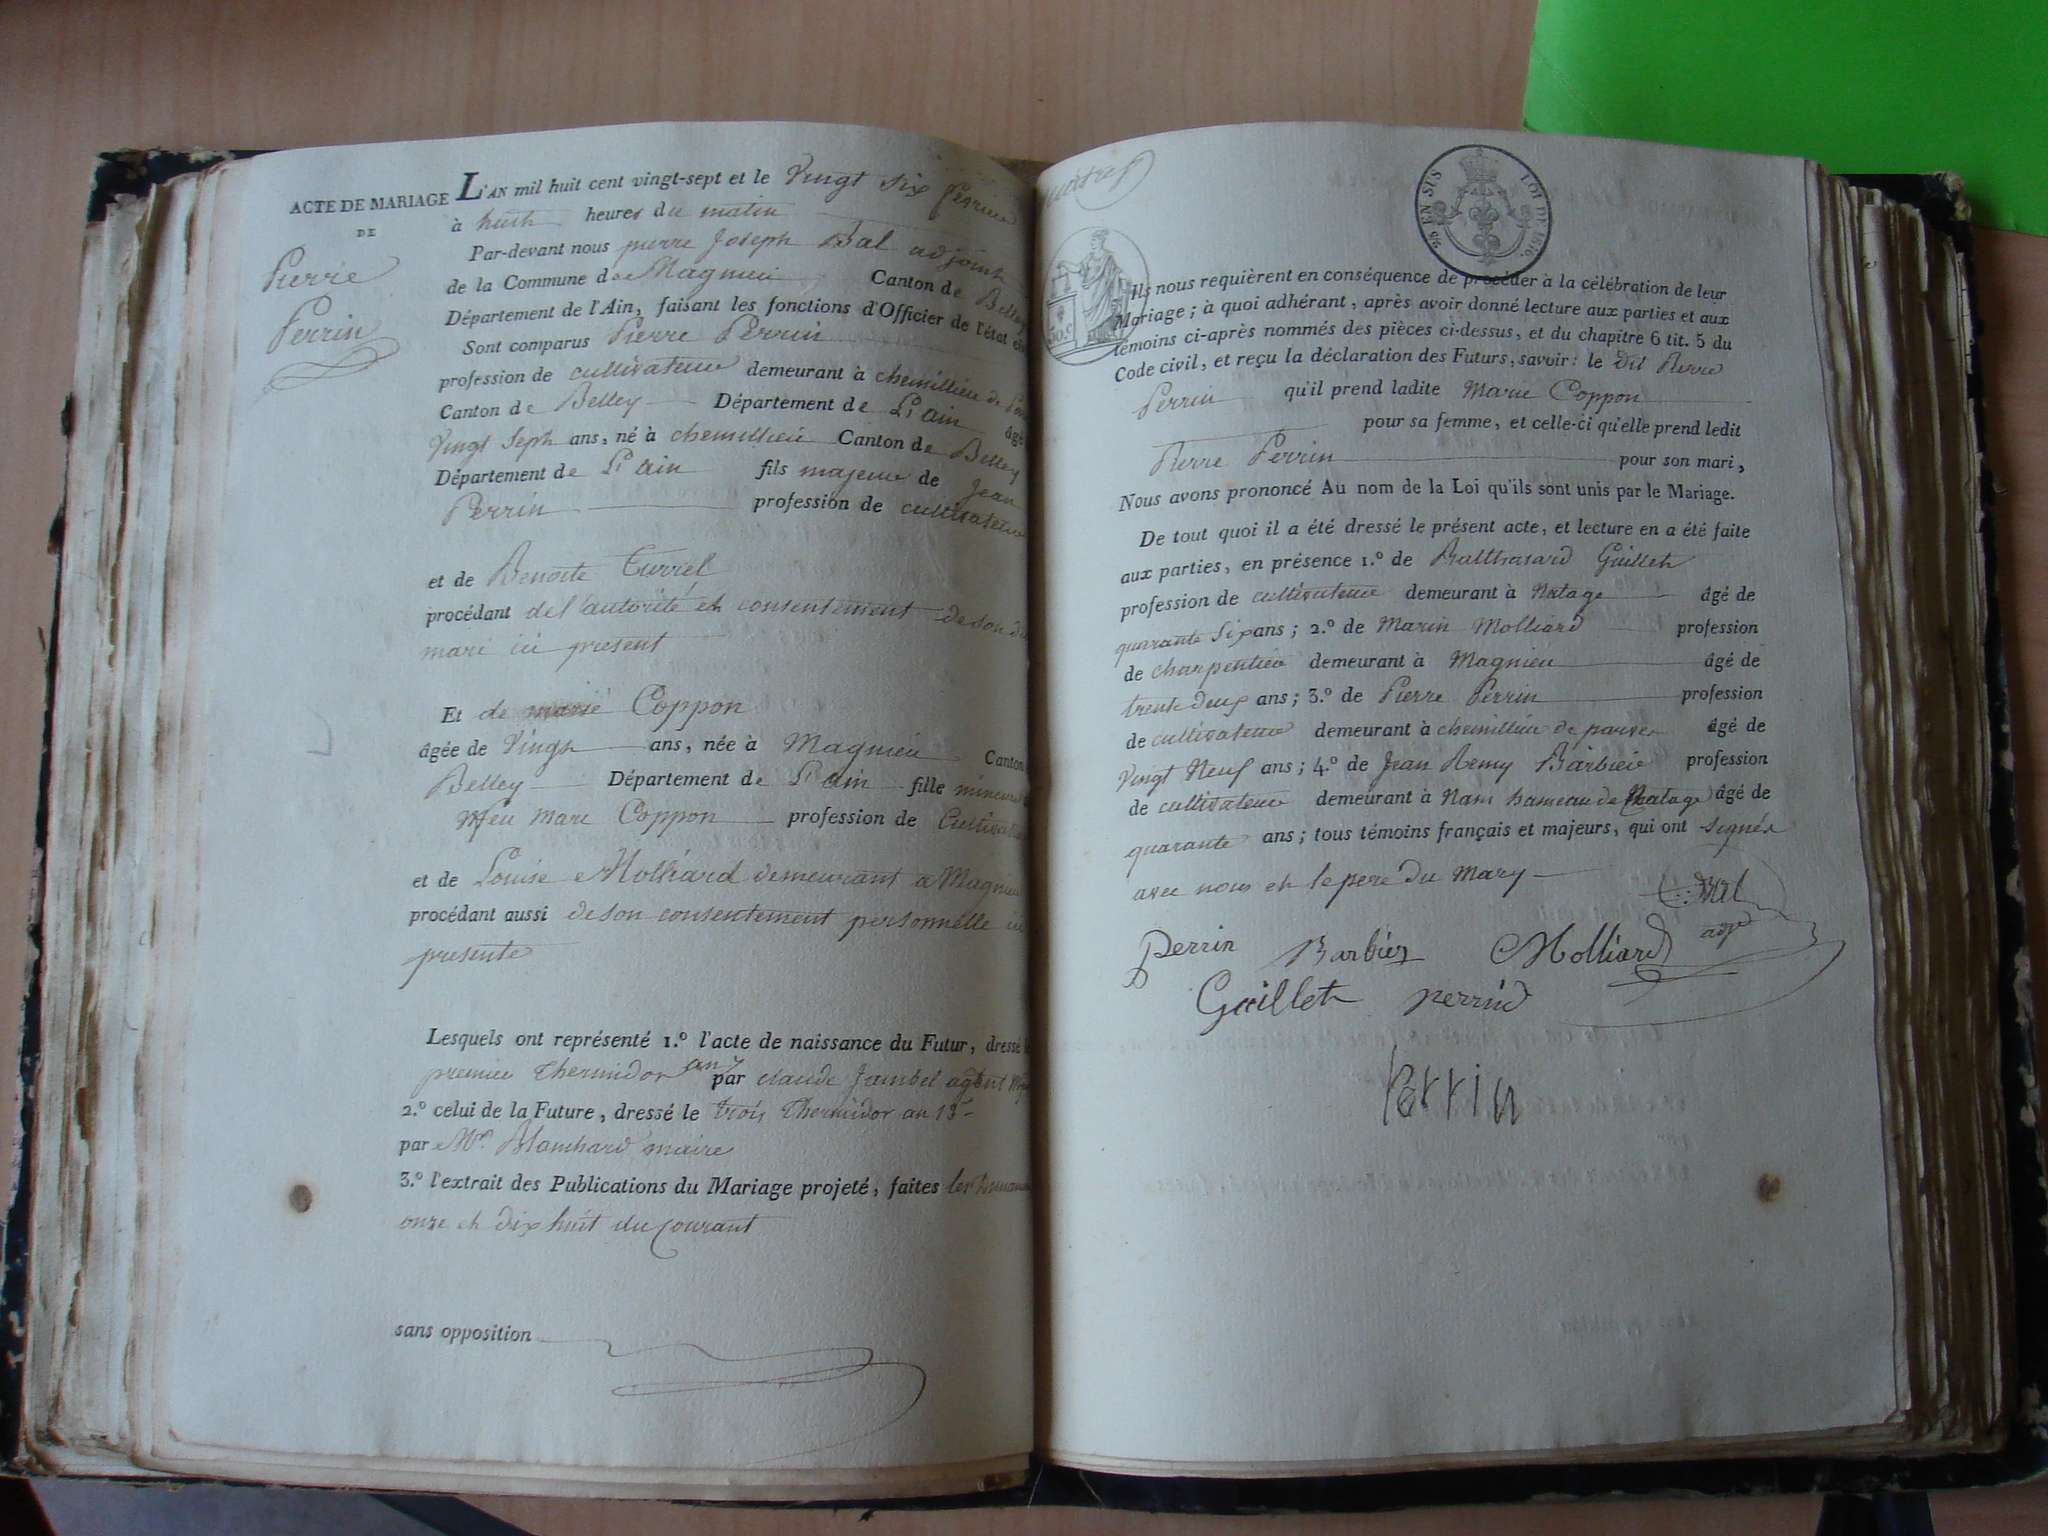 ACTE DE MARIAGE
DE
Pierre
Perrin
L'AN mil huit cent vingt-sept et le Vingt six Fevrier
à huit heures du matin
Par-devant nous pierre Joseph Bal adjoint
de la Commune de Magnieu Canton de Belley
Département de l'Ain, faisant les fonctions d'Officier de l'état
Sont comparus Pierre Perrin
profession de cultivateur demeurant à chemillieu de
Canton de Belley Département de L'ain âgé
Vingt Sept ans, né à chemillieu Canton de Belley
Département de L'ain fils majeur de Jean
Perrin profession de cultivateur
et de Benoite Turrel
procédant de l'autorité et consentement de son
mari ici present
Et de marie Coppon
âgée de Vingt ans, née à Magnieu Canton
Belley Département de L'ain fille mineure
feu Marc Coppon profession de Cultivateur
et de Louise Molliard demeurant a Magnieu
procédant aussi de son consentement personnelle ici
presente
Lesquels ont représenté 1.º l'acte de naissance du Futur, dressé
premier Thermidor an 7 par claude Jambel agent
2.º celui de la Future, dressé le trois Thermidor an 13
par Mr. Blanchard maire
3.º l'extrait des Publications du Mariage projeté, faites les
onze et dix huit du Courant
sans opposition
EN SUS LOI DE 1816.
50.c
Ils nous requièrent en conséquence de procéder à la célébration de leur
Mariage; à quoi adhérant, après avoir donné lecture aux parties et aux
témoins ci-après nommés des pièces ci-dessus, et du chapitre 6 tit. 5 du
Code civil, et reçu la déclaration des Futurs, savoir: le dit Pierre
Perrin qu'il prend ladite Marie Coppon
pour sa femme, et celle-ci qu'elle prend ledit
Pierre Perrin pour son mari,
Nous avons prononcé Au nom de la Loi qu'ils sont unis par le Mariage.
De tout quoi il a été dressé le présent acte, et lecture en a été faite
aux parties, en présence 1.º de Balthasard Guillet
profession de cultivateur demeurant à Natage âgé de
quarante Six ans; 2.º de Marin Molliard profession
de charpentier demeurant à Magnieu âgé de
trente deux ans; 3.º de Pierre Perrin profession
de cultivateur demeurant à chemillieu de parves âgé de
Vingt Neuf ans; 4.º de Jean Remy Barbier profession
de cultivateur demeurant à Nant hameau de Natage âgé de
quarante ans; tous témoins français et majeurs, qui ont signés
avec nous et le pere du Mary
Bal
adj
Perrin Barbier Molliard
Guillet perrin
Perrin